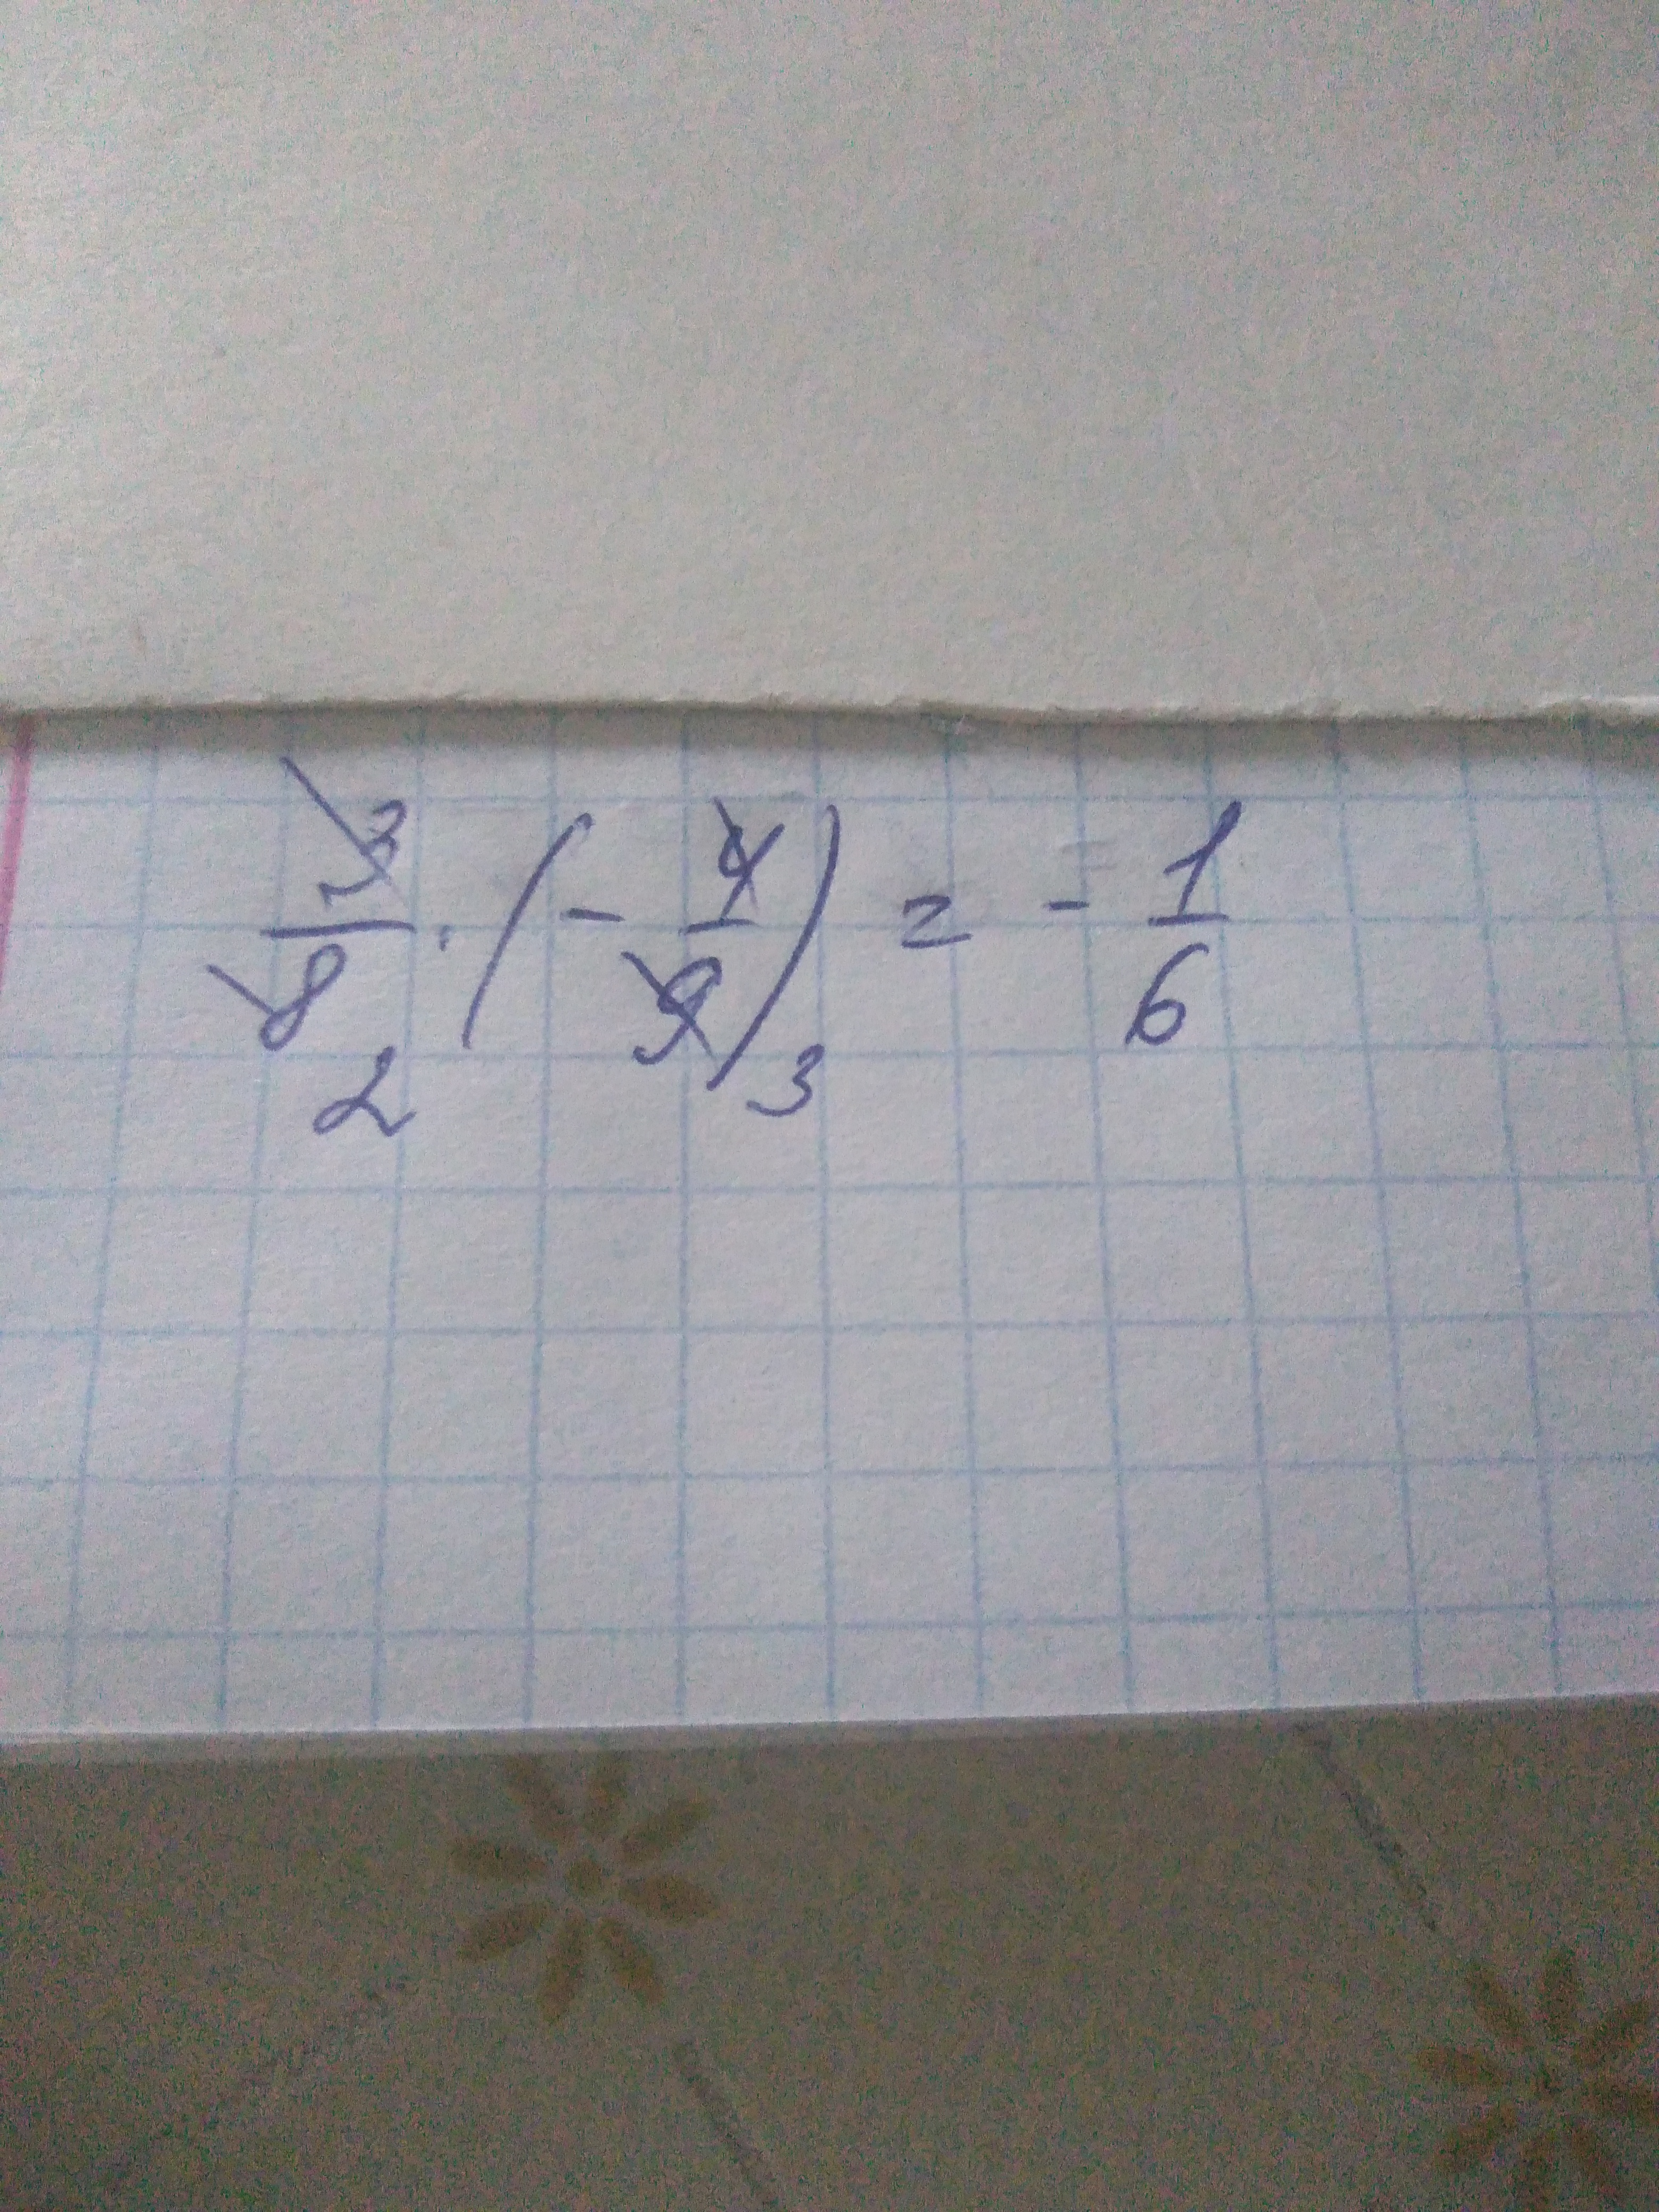 3/8 · (- 4/9) = - 1/6
2 3